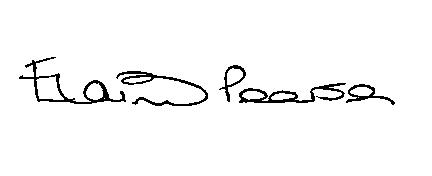 Elaine Pearson